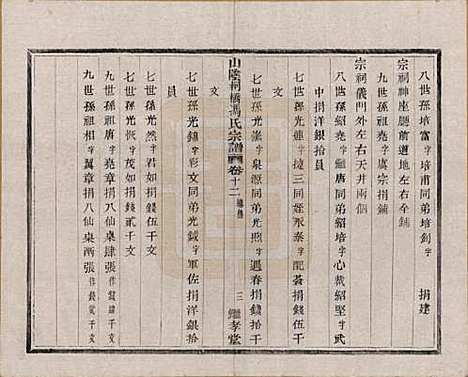 八世孫培富字培甫同弟培釗字　捐建
宗祠神座廳前道地左右午鋪
九世孫祖唐字虞宗捐鋪
宗祠儀門外左右天井兩個
八世孫紹堯字繼唐同弟紹培字心裁紹堅字武
中捐洋銀拾員
七世孫光蓮字撻三同姪永泰字配菴捐錢伍千
文
七世孫光瀠字泉源同弟光照字遇春捐錢拾千
文
山陰柯橋馮氏宗譜 卷十二 三 繼孝堂
七世孫光鎬字彩文同弟光鉞字軍佐捐洋銀拾
員
七世孫光然字君如捐錢伍千文
七世孫光恢字茂如捐錢貳千文
九世孫祖唐字堯章捐八仙桌肆張作錢肆千文
九世孫祖相字翼章捐八仙桌兩張作錢貳千文